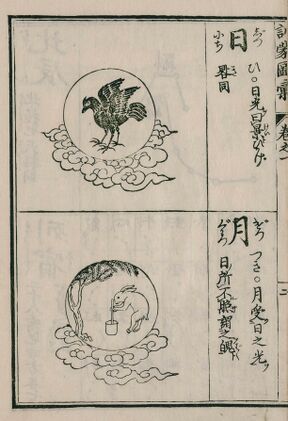 訓蒙圖彙 卷之一
二
日 じつ にち
ひ。日光曰景ひかげ
晷同
月 げつ ぐわつ
つき。月受日之光
日所不照謂之魄